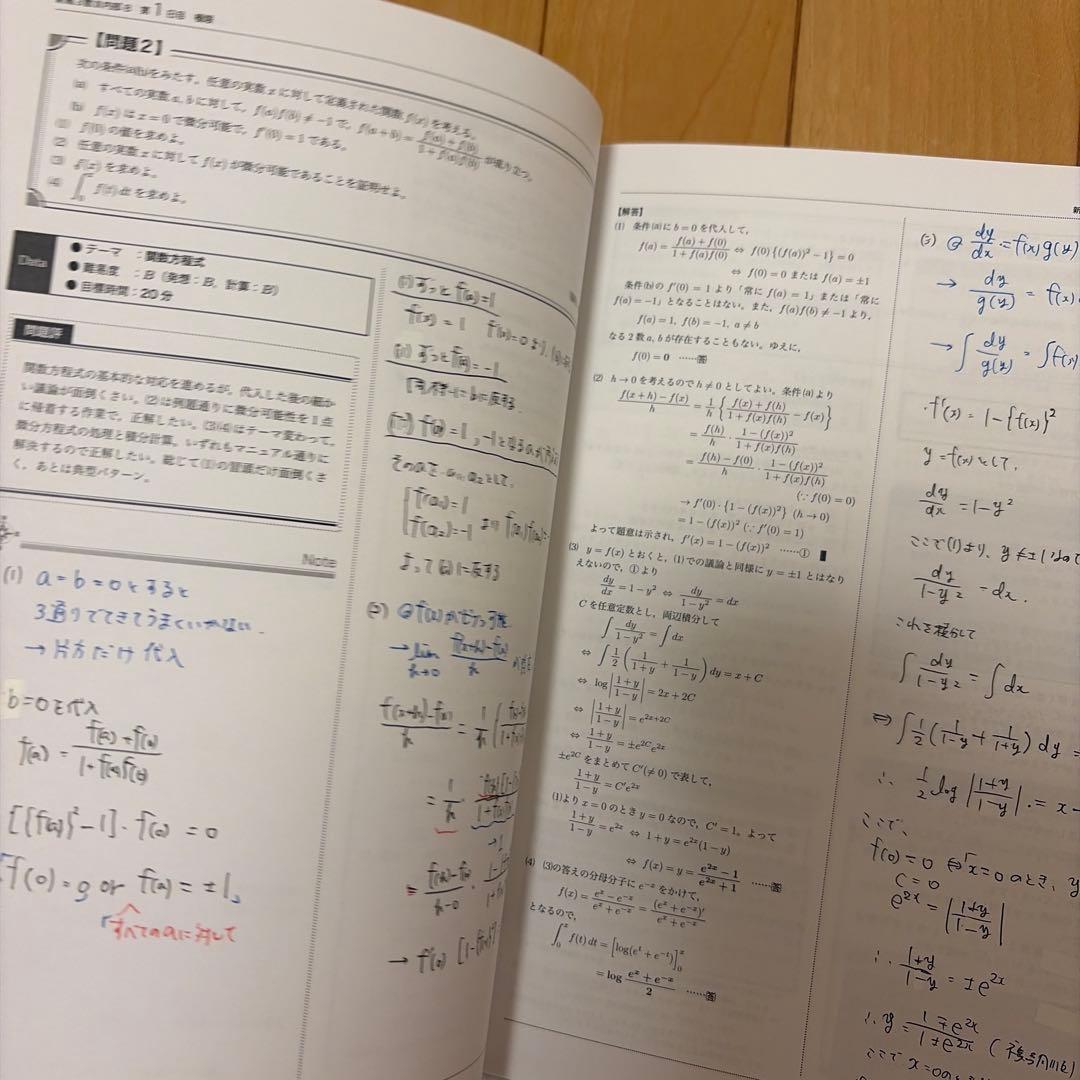 第1日目 極限
【問題2】
次の条件(a)(b)をみたす，任意の実数 x に対して定義された関数 f(x) を考える。
(a) すべての実数 a, b に対して，f(a)f(b) ≠ −1 で，f(a+b) = \frac{f(a)+f(b)}{1+f(a)f(b)} が成り立つ。
(b) f(x) は x = 0 で微分可能で，f'(0) = 1 である。
(1) f(0) の値を求めよ。
(2) 任意の実数 x に対して f(x) が微分可能であることを証明せよ。
(3) f(x) を求めよ。
(4) ∫_0^x f(t) dt を求めよ。
Data
● テーマ ：関数方程式
● 難易度 ：B（発想：B，計算：B）
● 目標時間：20分
問題評
関数方程式の基本的な対応を進めるが，代入した後の細か
い議論が面倒くさい。(2)は例題通りに微分可能性を1点
に帰着する作業で，正解したい。(3)(4)はテーマ変わって，
微分方程式の処理と積分計算。いずれもマニュアル通りに
解決するので正解したい。総じて(1)の冒頭だけ面倒くさ
く，あとは典型パターン。
Note
(1) a=b=0とすると
3通りでてきてうまくいかない.
→ 片方だけ代入
b=0を代入
f(a) = \frac{f(a)+f(0)}{1+f(a)f(0)}
[{f(a)}^2−1]・f(0) = 0
「f(0)=0 or f(a)=±1」
「すべてのaに対して
(i) ずっと f(a)=1
f(x)=1
(ii) ずっと f(a)=−1
f(a)=1, −1となるaが
そのaを a_1, a_2 として,
f(a_1)=1
f(a_2)=−1
より
よって(a)に反する
(2)
→ lim_{h→0} \frac{f(x+h)−f(x)}{h}
\frac{f(x+h)−f(x)}{h} = \frac{1}{h}
= \frac{1}{h}・
= \frac{f(h)−f(0)}{h−0}・
→ f'(0)
【解答】
(1) 条件(a)に b = 0 を代入して，
f(a) = \frac{f(a)+f(0)}{1+f(a)f(0)} ⇔ f(0){(f(a))^2 − 1} = 0
⇔ f(0) = 0 または f(a) = ±1
条件(b)の f'(0) = 1 より「常に f(a) = 1」または「常に
f(a) = −1」となることはない。また，f(a)f(b) ≠ −1 より，
f(a) = 1, f(b) = −1, a ≠ b
なる2数 a, b が存在することもない。ゆえに，
f(0) = 0 ……答
(2) h → 0 を考えるので h ≠ 0 としてよい。条件(a)より
\frac{f(x+h)−f(x)}{h} = \frac{1}{h}{\frac{f(x)+f(h)}{1+f(x)f(h)} − f(x)}
= \frac{f(h)}{h}・\frac{1−(f(x))^2}{1+f(x)f(h)}
= \frac{f(h)−f(0)}{h}・\frac{1−(f(x))^2}{1+f(x)f(h)}
(∵ f(0) = 0)
→ f'(0)・{1 − (f(x))^2} (h → 0)
= 1 − (f(x))^2 (∵ f'(0) = 1)
よって題意は示され，f'(x) = 1 − (f(x))^2 ……① ■
(3) y = f(x) とおくと，(1)での議論と同様に y = ±1 とはなり
えないので，①より
\frac{dy}{dx} = 1 − y^2 ⇔ \frac{dy}{1−y^2} = dx
C を任意定数とし，両辺積分して
∫\frac{dy}{1−y^2} = ∫dx
⇔ ∫\frac{1}{2}(\frac{1}{1+y} + \frac{1}{1−y})dy = x + C
⇔ log|\frac{1+y}{1−y}| = 2x + 2C
⇔ |\frac{1+y}{1−y}| = e^{2x+2C}
⇔ \frac{1+y}{1−y} = ±e^{2C}e^{2x}
±e^{2C} をまとめて C'(≠ 0) で表して，
\frac{1+y}{1−y} = C'e^{2x}
(1)より x = 0 のとき y = 0 なので，C' = 1。よって
\frac{1+y}{1−y} = e^{2x} ⇔ 1 + y = e^{2x}(1 − y)
⇔ f(x) = y = \frac{e^{2x}−1}{e^{2x}+1} ……答
(4) (3)の答えの分母分子に e^{−x} をかけて，
f(x) = \frac{e^x−e^{−x}}{e^x+e^{−x}} = \frac{(e^x+e^{−x})'}{e^x+e^{−x}}
となるので，
∫_0^x f(t) dt = [log(e^t + e^{−t})]_0^x
= log\frac{e^x+e^{−x}}{2} ……答
新
(3) \frac{dy}{dx} = f(x)g(y)
→ \frac{dy}{g(y)} = f(x)
→ ∫\frac{dy}{g(y)} = ∫f(x)
・f'(x) = 1−{f(x)}^2
y=f(x)として,
\frac{dy}{dx} = 1−y^2
ここで(1)より, y≠±1なので
\frac{dy}{1−y^2} = dx.
これを積分して
∫\frac{dy}{1−y^2} = ∫dx
⇔ ∫\frac{1}{2}(\frac{1}{1−y}+\frac{1}{1+y})dy =
∴ \frac{1}{2}log|\frac{1+y}{1−y}| = x
ここで,
f(0)=0 ⇔「x=0のとき, y
C=0
e^{2x} = |\frac{1+y}{1−y}|
∴ \frac{1+y}{1−y} = ±e^{2x}
∴ y = \frac{1∓e^{2x}}{1±e^{2x}}
ここで x=0の